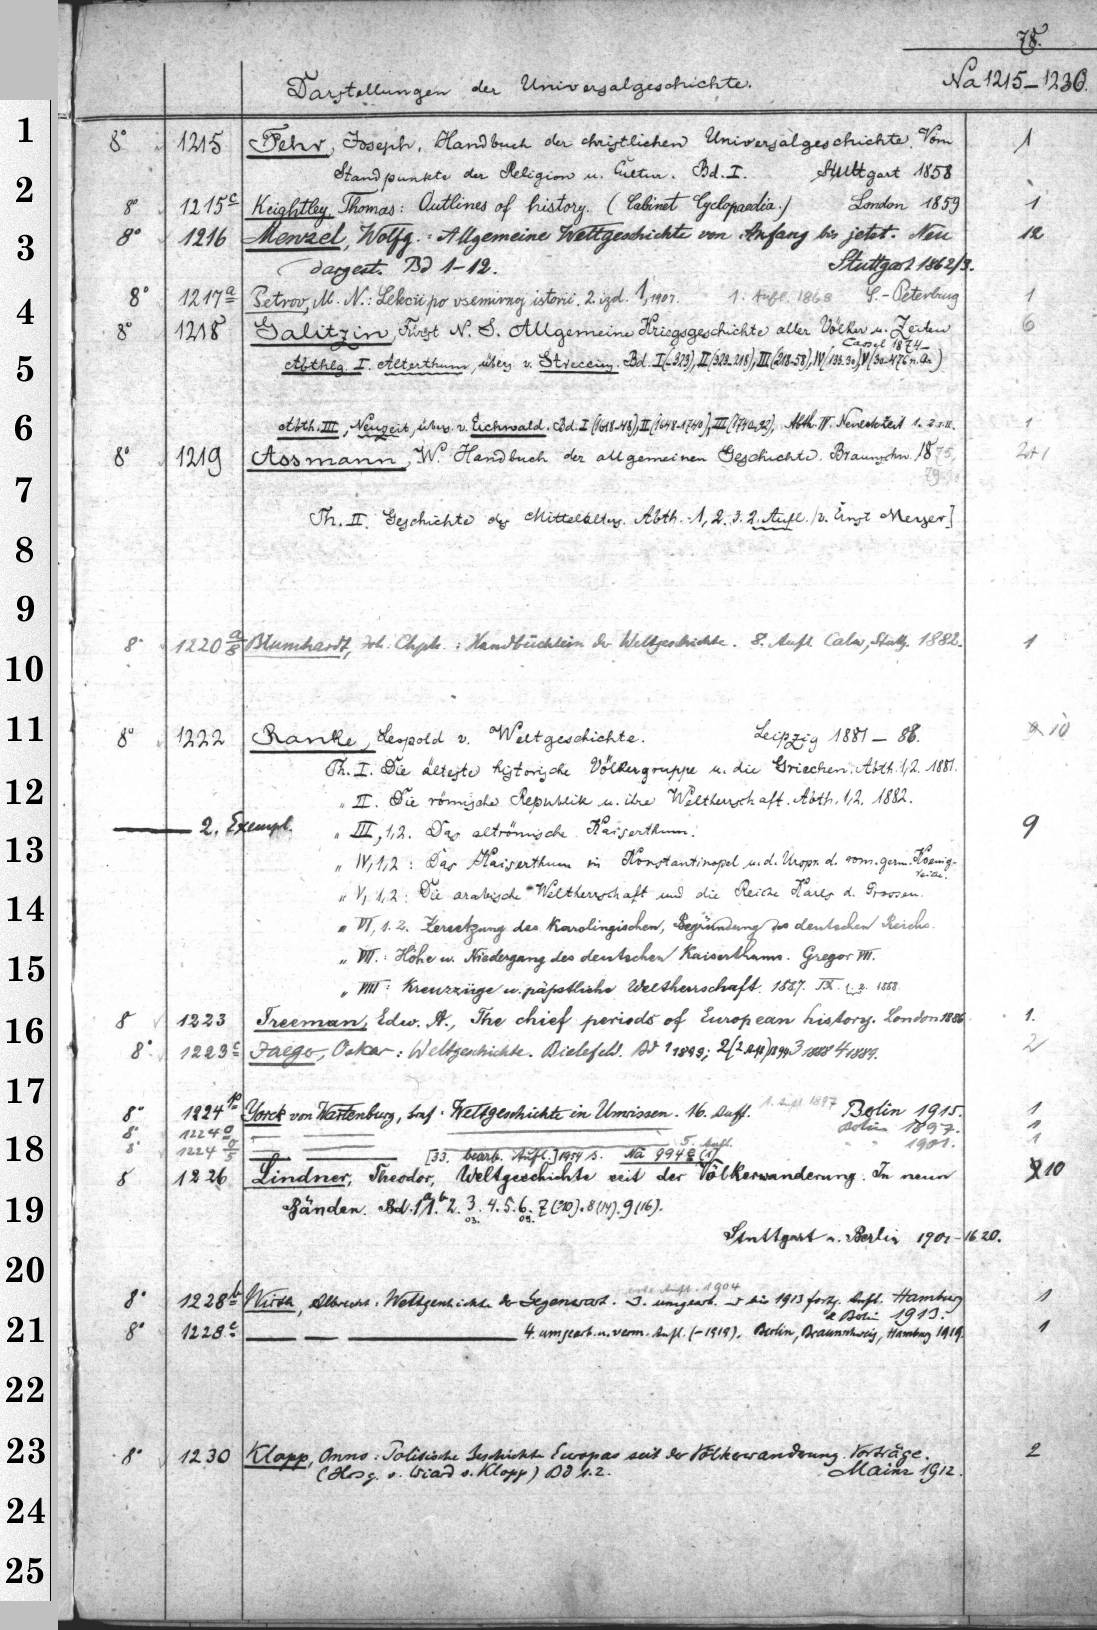 78.
Darstellungen der Universalgeschichte. Na 1215-1230.
1
8° 1215 Fehr, Joseph, Handbuch der christlichen Universalgeschichte. Vom 1
Standpunkte der Religion u. Cultur. Bd. I. Stuttgart 1858
2
8° 1215c Keightley, Thomas: Outlines of history. (Cabinet Cyclopaedia.) London 1859 1
3
8° 1216 Menzel, Wolfg.: Allgemeine Weltgeschichte von Anfang bis jetzt. Neu 12
dargest. Bd 1-12. Stuttgart 1862/3.
4
8° 1217a Petrov, M. N.: Lekcii po vsemirnoj istorii. 2. izd. 1, 1907. 1. Aufl. 1868 S.-Peterburg 1
8° 1218 Galitzin, Fürst N. S. Allgemeine Kriegsgeschichte aller Völker u. Zeiten 6
Cassel 1874-
5
Abthlg. I. Alterthum, übers. v. Streccius. Bd. I(-323), II(323-218), III(218-58), IV(133-30), V(30-476 n. Chr.)
6
Abth. III, Neuzeit, übers. v. Eichwald. Bd. I (1618-48), II (1648-1740), III (1740-92), Abth. IV. Neueste Zeit 1. 2. 1
8° 1219 Assmann, W. Handbuch der allgemeinen Geschichte. Braunschw. 1875, 2+1
79
7
Th. II. Geschichte des Mittelalters. Abth. 1, 2. 3. 2. Aufl. [v. Ernst Meyer]
8
9
8° 1220 a/8 Blumhardt, Joh. Chph.: Handbüchlein der Weltgeschichte. 8. Aufl. Calw, Stuttg. 1882. 1
10
11
8° 1222 Ranke, Leopold v. Weltgeschichte. Leipzig 1881-88. 10
Th. I. Die älteste historische Völkergruppe u. die Griechen. Abth. 1,2. 1881.
12
" II. Die römische Republik u. ihre Weltherrschaft. Abth. 1,2. 1882.
2. Exempl. " III, 1,2. Das altrömische Kaiserthum. 9
13
" IV, 1,2: Das Kaiserthum in Konstantinopel u. d. Urspr. d. rom. germ. Koenig-
reiche.
" V, 1,2: Die arabische Weltherrschaft und die Reiche Karls d. Grossen.
14
" VI, 1.2. Zersetzung des karolingischen, Begründung des deutschen Reichs.
" VII.: Höhe u. Niedergang des deutschen Kaiserthums. Gregor VII.
15
" VIII: Kreuzzüge u. päpstliche Weltherrschaft. 1887. IX. 1. 2. 1888
16
8 1223 Freeman, Edw. A., The chief periods of European history. London 1886 1.
8° 1223c Jaeger, Oskar: Weltgeschichte. Bielefeld. Bd 1 1899; 2 (2. Aufl.) 1894 3 1888 4 1889. 2
17
8° 1224 Yorck von Wartenburg, Graf: Weltgeschichte in Umrissen. 16. Aufl. 1. Aufl. 1897 Berlin 1915. 1
8° 1224 Berlin 1897. 1
18
8° 1224 5. Aufl. " " 1901. 1
[23. bearb. Aufl.] 1934 s. Na 994
8 1226 Lindner, Theodor, Weltgeschichte seit der Völkerwanderung. In neun 10
19
Bänden. Bd. 1a 1b 2. 3. 4. 5. 6. 7 (20). 8 (14). 9 (16).
03. 09.
Stuttgart u. Berlin 1901-16 20.
20
8° 1228b Wirth, Albrecht: Weltgeschichte der Gegenwart. 3. umgearb. u. bis 1913 fortg. Aufl. Hamburg 1
erste Aufl. 1904
u Berlin 1913.
21
8° 1228c 4. umgearb. u. verm. Aufl. (-1919). Berlin, Braunschweig, Hamburg 1919 1
22
23
8° 1230 Klopp, Onno: Politische Geschichte Europas seit der Völkerwanderung. Vorträge. 2
(Hrsg. v. Wiard v. Klopp) Bd 1. 2. Mainz 1912.
24
25